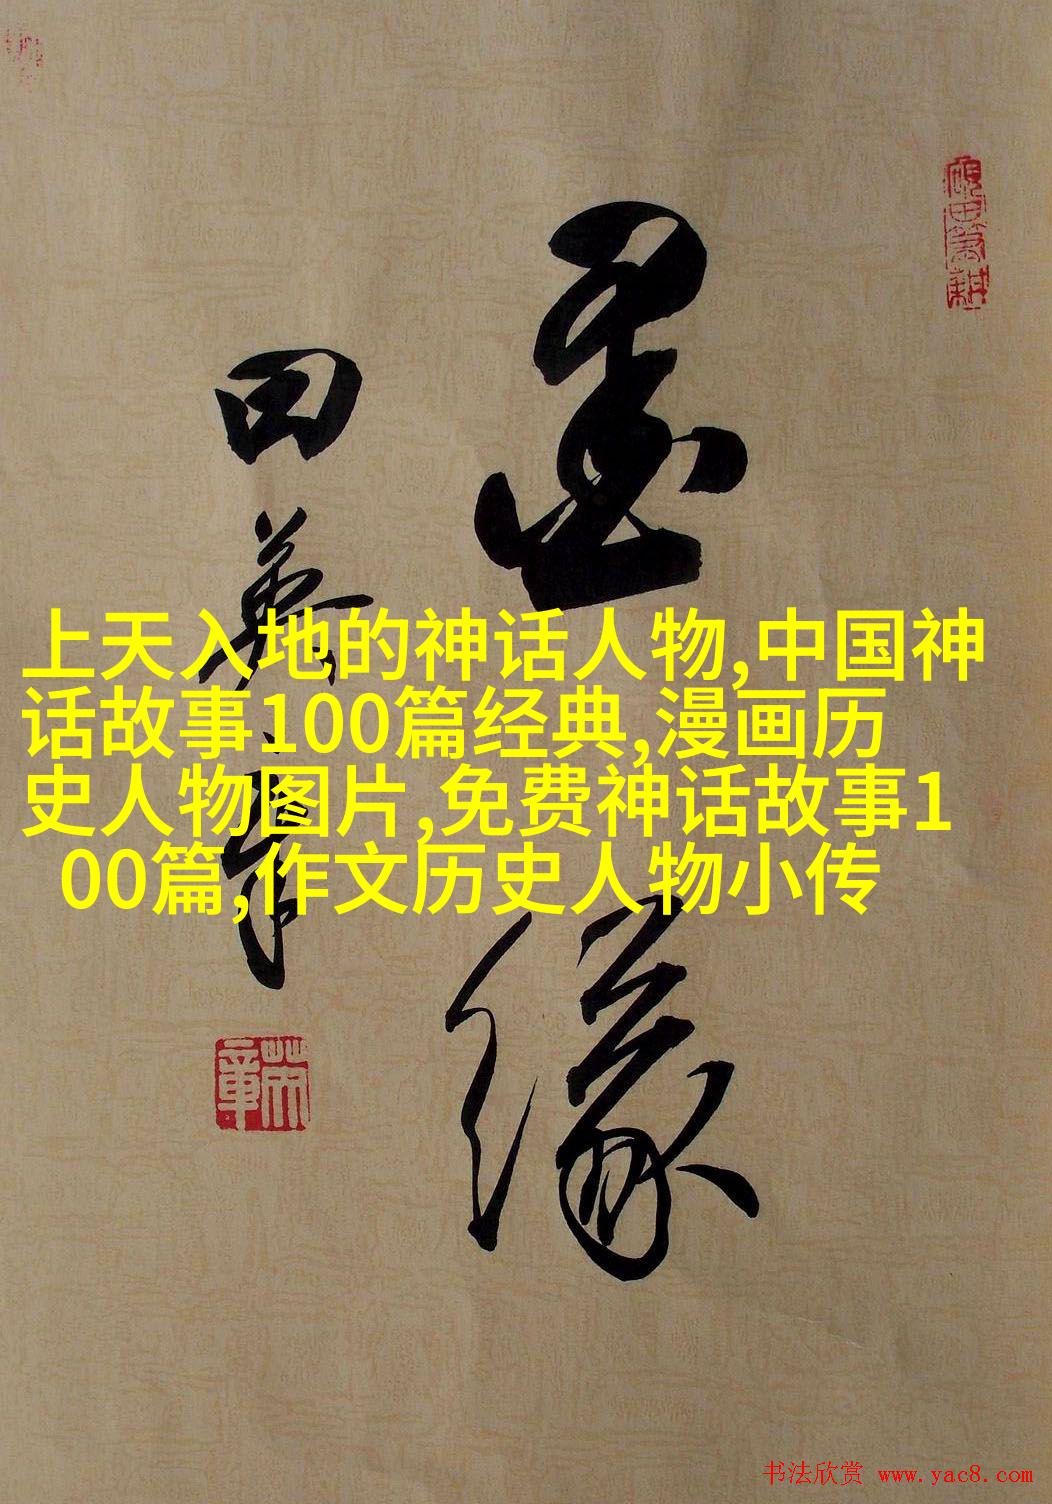 墨
缘
田英章
上天入地的神话人物,中国神
话故事100篇经典,漫画历
史人物图片,免费神话故事1
00篇,作文历史人物小传
书法欣赏 www.yac8.com